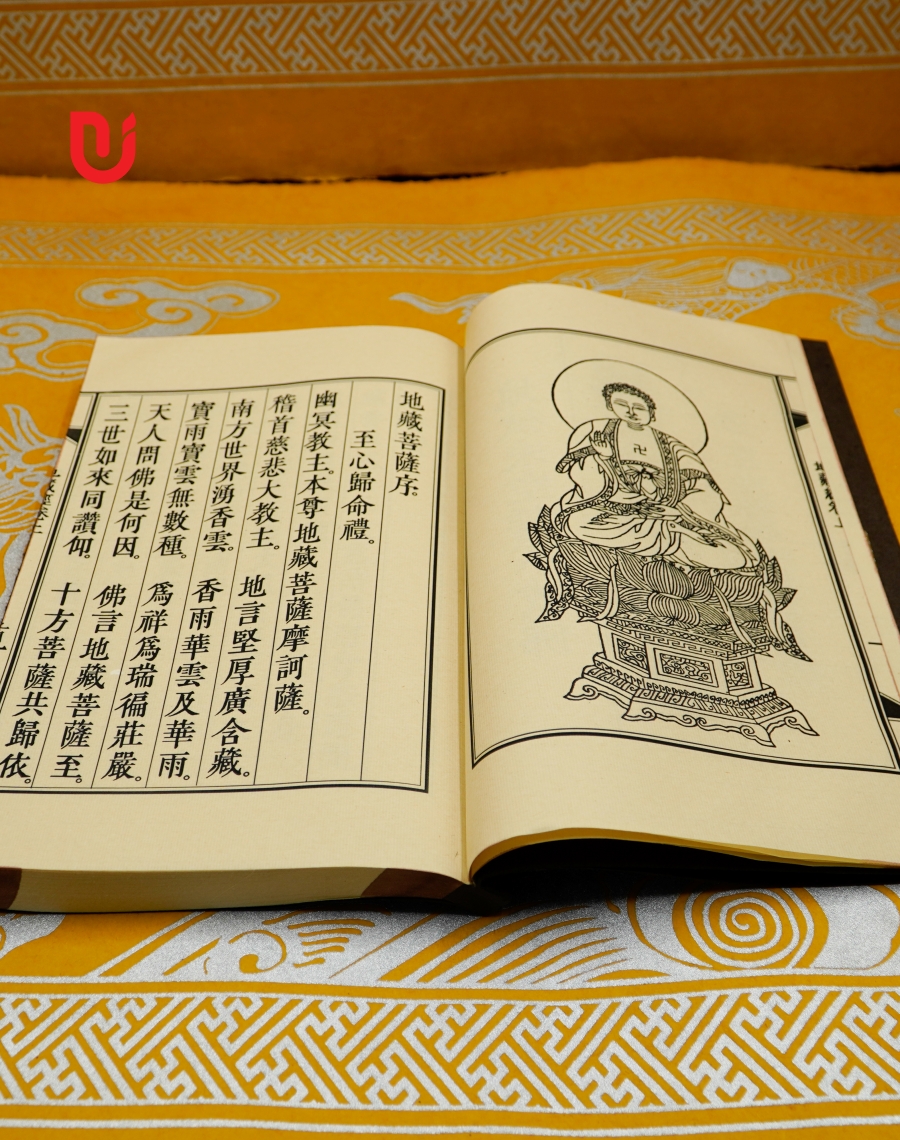 地藏菩薩序。
至心歸命禮。
幽冥教主。本尊地藏菩薩摩訶薩。
稽首慈悲大教主。 地言堅厚廣含藏。
南方世界湧香雲。 香雨華雲及華雨。
寶雨寶雲無數種。 爲祥爲瑞徧莊嚴。
天人問佛是何因。 佛言地藏菩薩至。
三世如來同讚仰。 十方菩薩共歸依。
卍